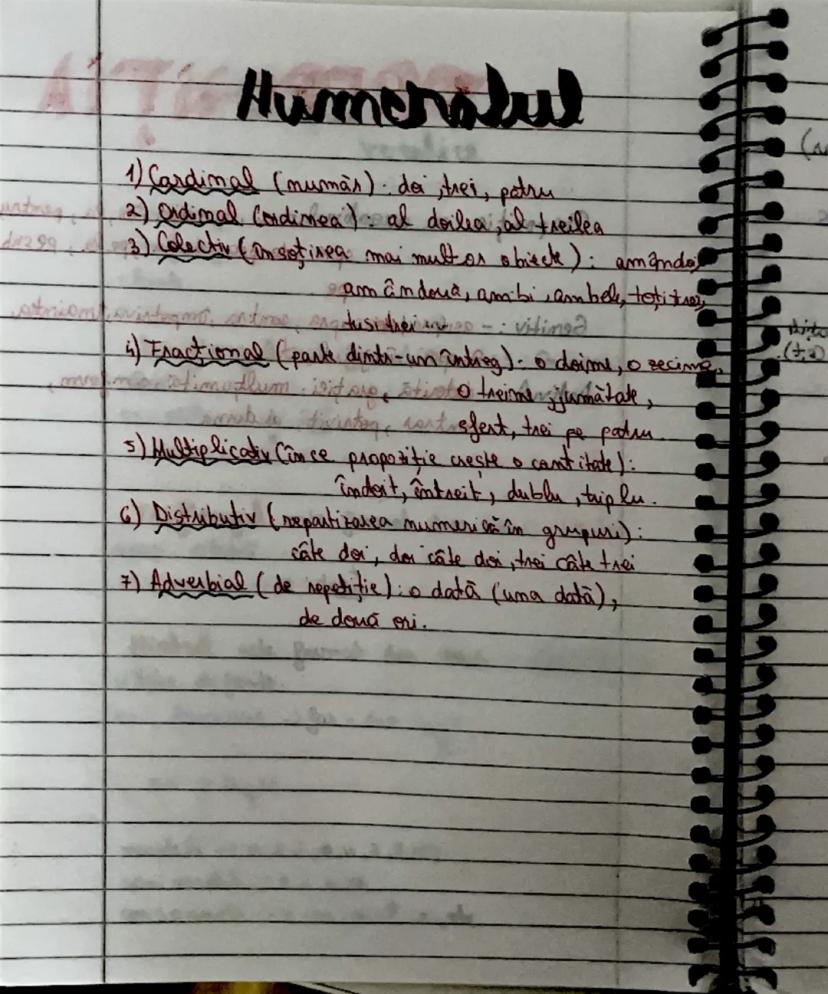 Numeralul
1) Cardinal (număr): doi, trei, patru
2) Ordinal (ordinea): al doilea, al treilea
3) Colectiv (însoțirea mai multor obiecte): amândoi,
amândouă, amibi, ambele, toți trei,
tusitrei
4) Fracțional (parte dintr-un întreg): o doime, o zecime,
o treime, jumătate,
sfert, trei pe patru.
5) Multiplicativ (în ce propoziție crește o cantitate):
îndoit, întreit, dublu, triplu.
6) Distributiv (repartizarea numerică în grupuri):
câte doi, doi câte doi, trei câte trei
7) Adverbial (de repetiție): o dată (una dată),
de două ori.